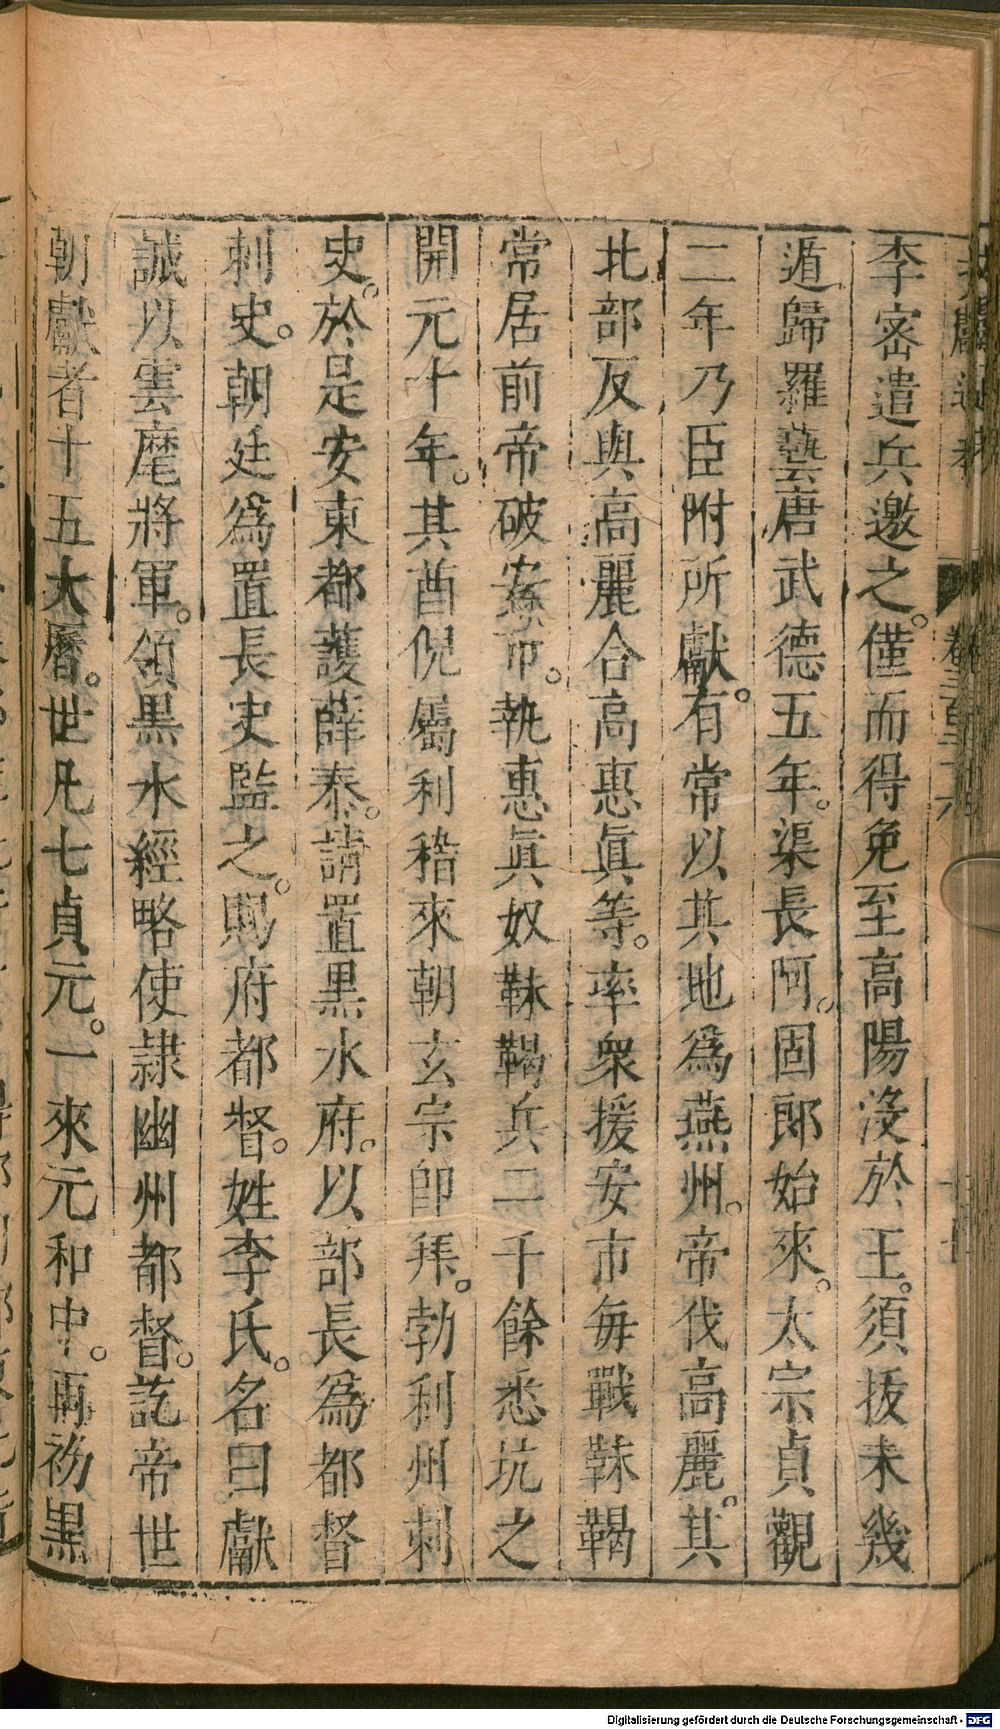 李密遣兵邀之。僅而得免至高陽沒於王。須拔未幾
遁歸羅藝唐武德五年。渠長阿。固郎始來。太宗貞觀
二年乃臣附所獻。有常以其地爲燕州。帝伐高麗。其
北部反與高麗合高惠眞等。率衆援安市每戰靺鞨
常居前帝破安市。執惠眞奴靺鞨兵二千餘悉坑之
開元十年。其酋倪屬利稽來朝玄宗卽拜。勃利州刺
史。於是安東都護薛泰。請置黑水府。以部長爲都督
刺史。朝廷爲置長史監之。賜府都督。姓李氏。名曰獻
誠以雲麾將軍。領黑水經略使隷幽州都督。訖帝世
朝獻者十五大曆。世凡七貞元。一來元和中。再初黑
卷三百二十六
Digitalisierung gefördert durch die Deutsche Forschungsgemeinschaft - DFG